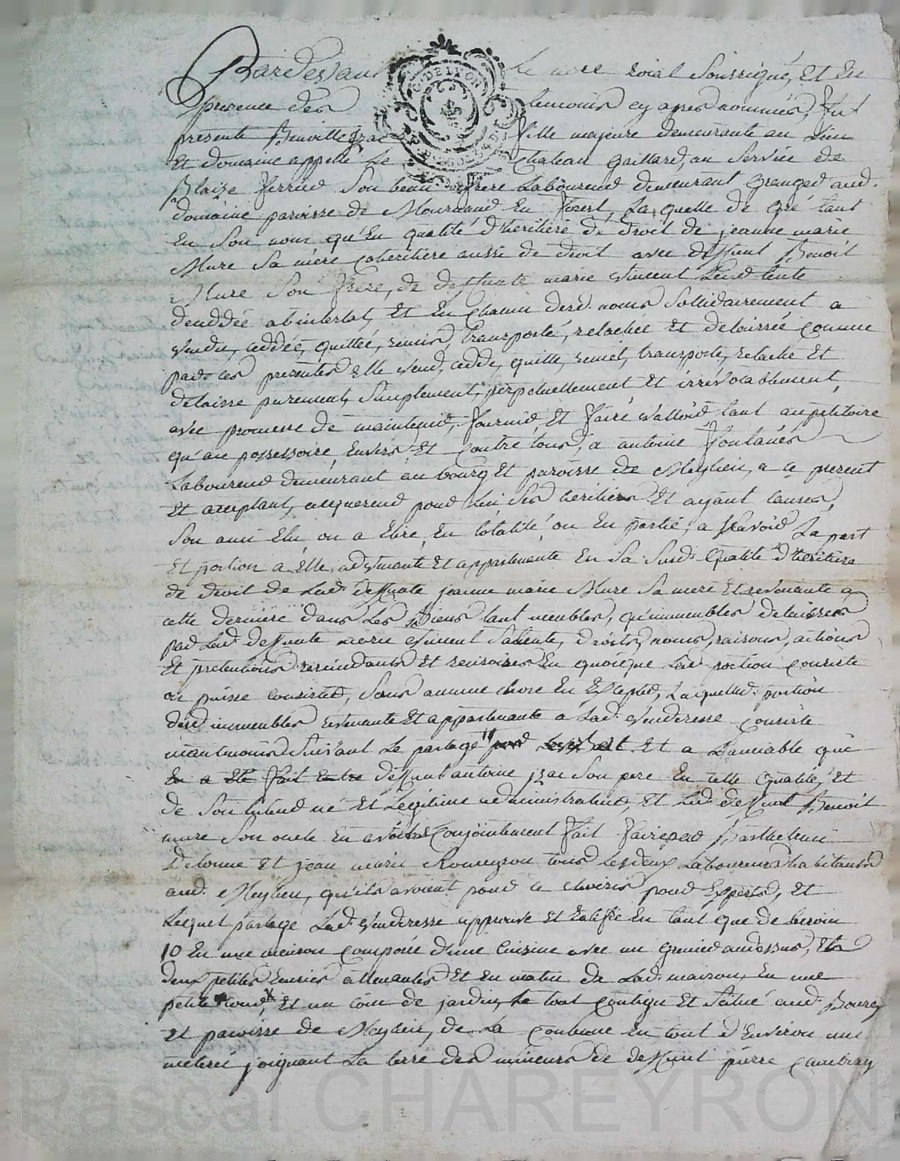 Pardevant Le nore roial Soussigné, Et En
presence des temoins cy apres nommés, fut
presente Benoitte Fille majeure demeurante au Lieu
Et domaine appellé Le Chateau gaillard, au Service de
Blaize Son beau frere Laboureur demeurant Granger aud.
domaine paroisse de Mournand En forest, La quelle de gré tant
En Son nom qu'En qualité d'heritiere de droit de jeanne marie
Mure Sa mere coheritiere aussi de droit avec deffunt Benoit
Mure Son frere, de deffunte marie vincent Leur tante
deceddée abintestat, Et En chacun desd. noms Solidairement a
vendu, ceddée, quittée, remis, transporté, relachée Et delaissée comme
par ces presentes Elle vend, cedde, quitte, remet, transporte, relache Et
delaisse purement, Simplement, perpetuellement Et irrévocablement,
avec promesse de maintenir, fournir Et faire valloir tant au petitoire
qu'au possessoire Envers Et Contre tous, a antoine fontanés
Laboureur demeurant au bourg Et paroisse de Meylieu, a ce present
Et acceptant, acquereur pour Lui Ses heritiers Et ayant causes,
Son ami Elu ou a Elire, En totalité ou En partie, a Savoir La part
Et portion a Elle adjunte Et appartenante En Sa Susd. Qualité d'heritiere
de droit de Lad. deffunte jeanne marie Mure Sa mere Et revenante a
cette derniere dans Les Biens tant meubles, qu'immeubles delaissés
par Lad. deffunte marie vincent Sa tante, droits, noms, raisons, actions
Et pretentions rescindants Et rescisoires En quoique Lad. portion consiste
ou puisse consister, Sans aucune chose En Excepter, Laquelle portion
desd. immeubles revenante Et appartenante a Lad. venderesse consiste
maintenant Suivant Le partage Et a L'amiable que
deffunt antoine Son pere En telle Qualité, Et
de Son tuteur né Et Legitime administrateur, Et Led. deffunt Benoit
mure Son oncle En avoient Conjointement fait faire par Barthelemi
Delorme Et jean marie Romeyron tous Les deux Laboureurs habitants
aud. Meylieu, qu'ils avoient pour ce choisis pour Experts, Et
Lequel partage Lad. venderesse approuve Et ratiffie En tant que de besoin
10 En une maison Composée d'une Cuisine avec un grenier audessus, Et
deux petites Ecuries attenantes Et En matin de Lad. maison, En une
petite cour, Et un coin de jardin, Le tout contigu Et Situé aud. Bourg
Et paroisse de Meylieu, de La Contenue En tout d'Environ une
meterée joignant La terre des mineurs de deffunt pierre
Pascal CHAREYRON
G. DE LYON